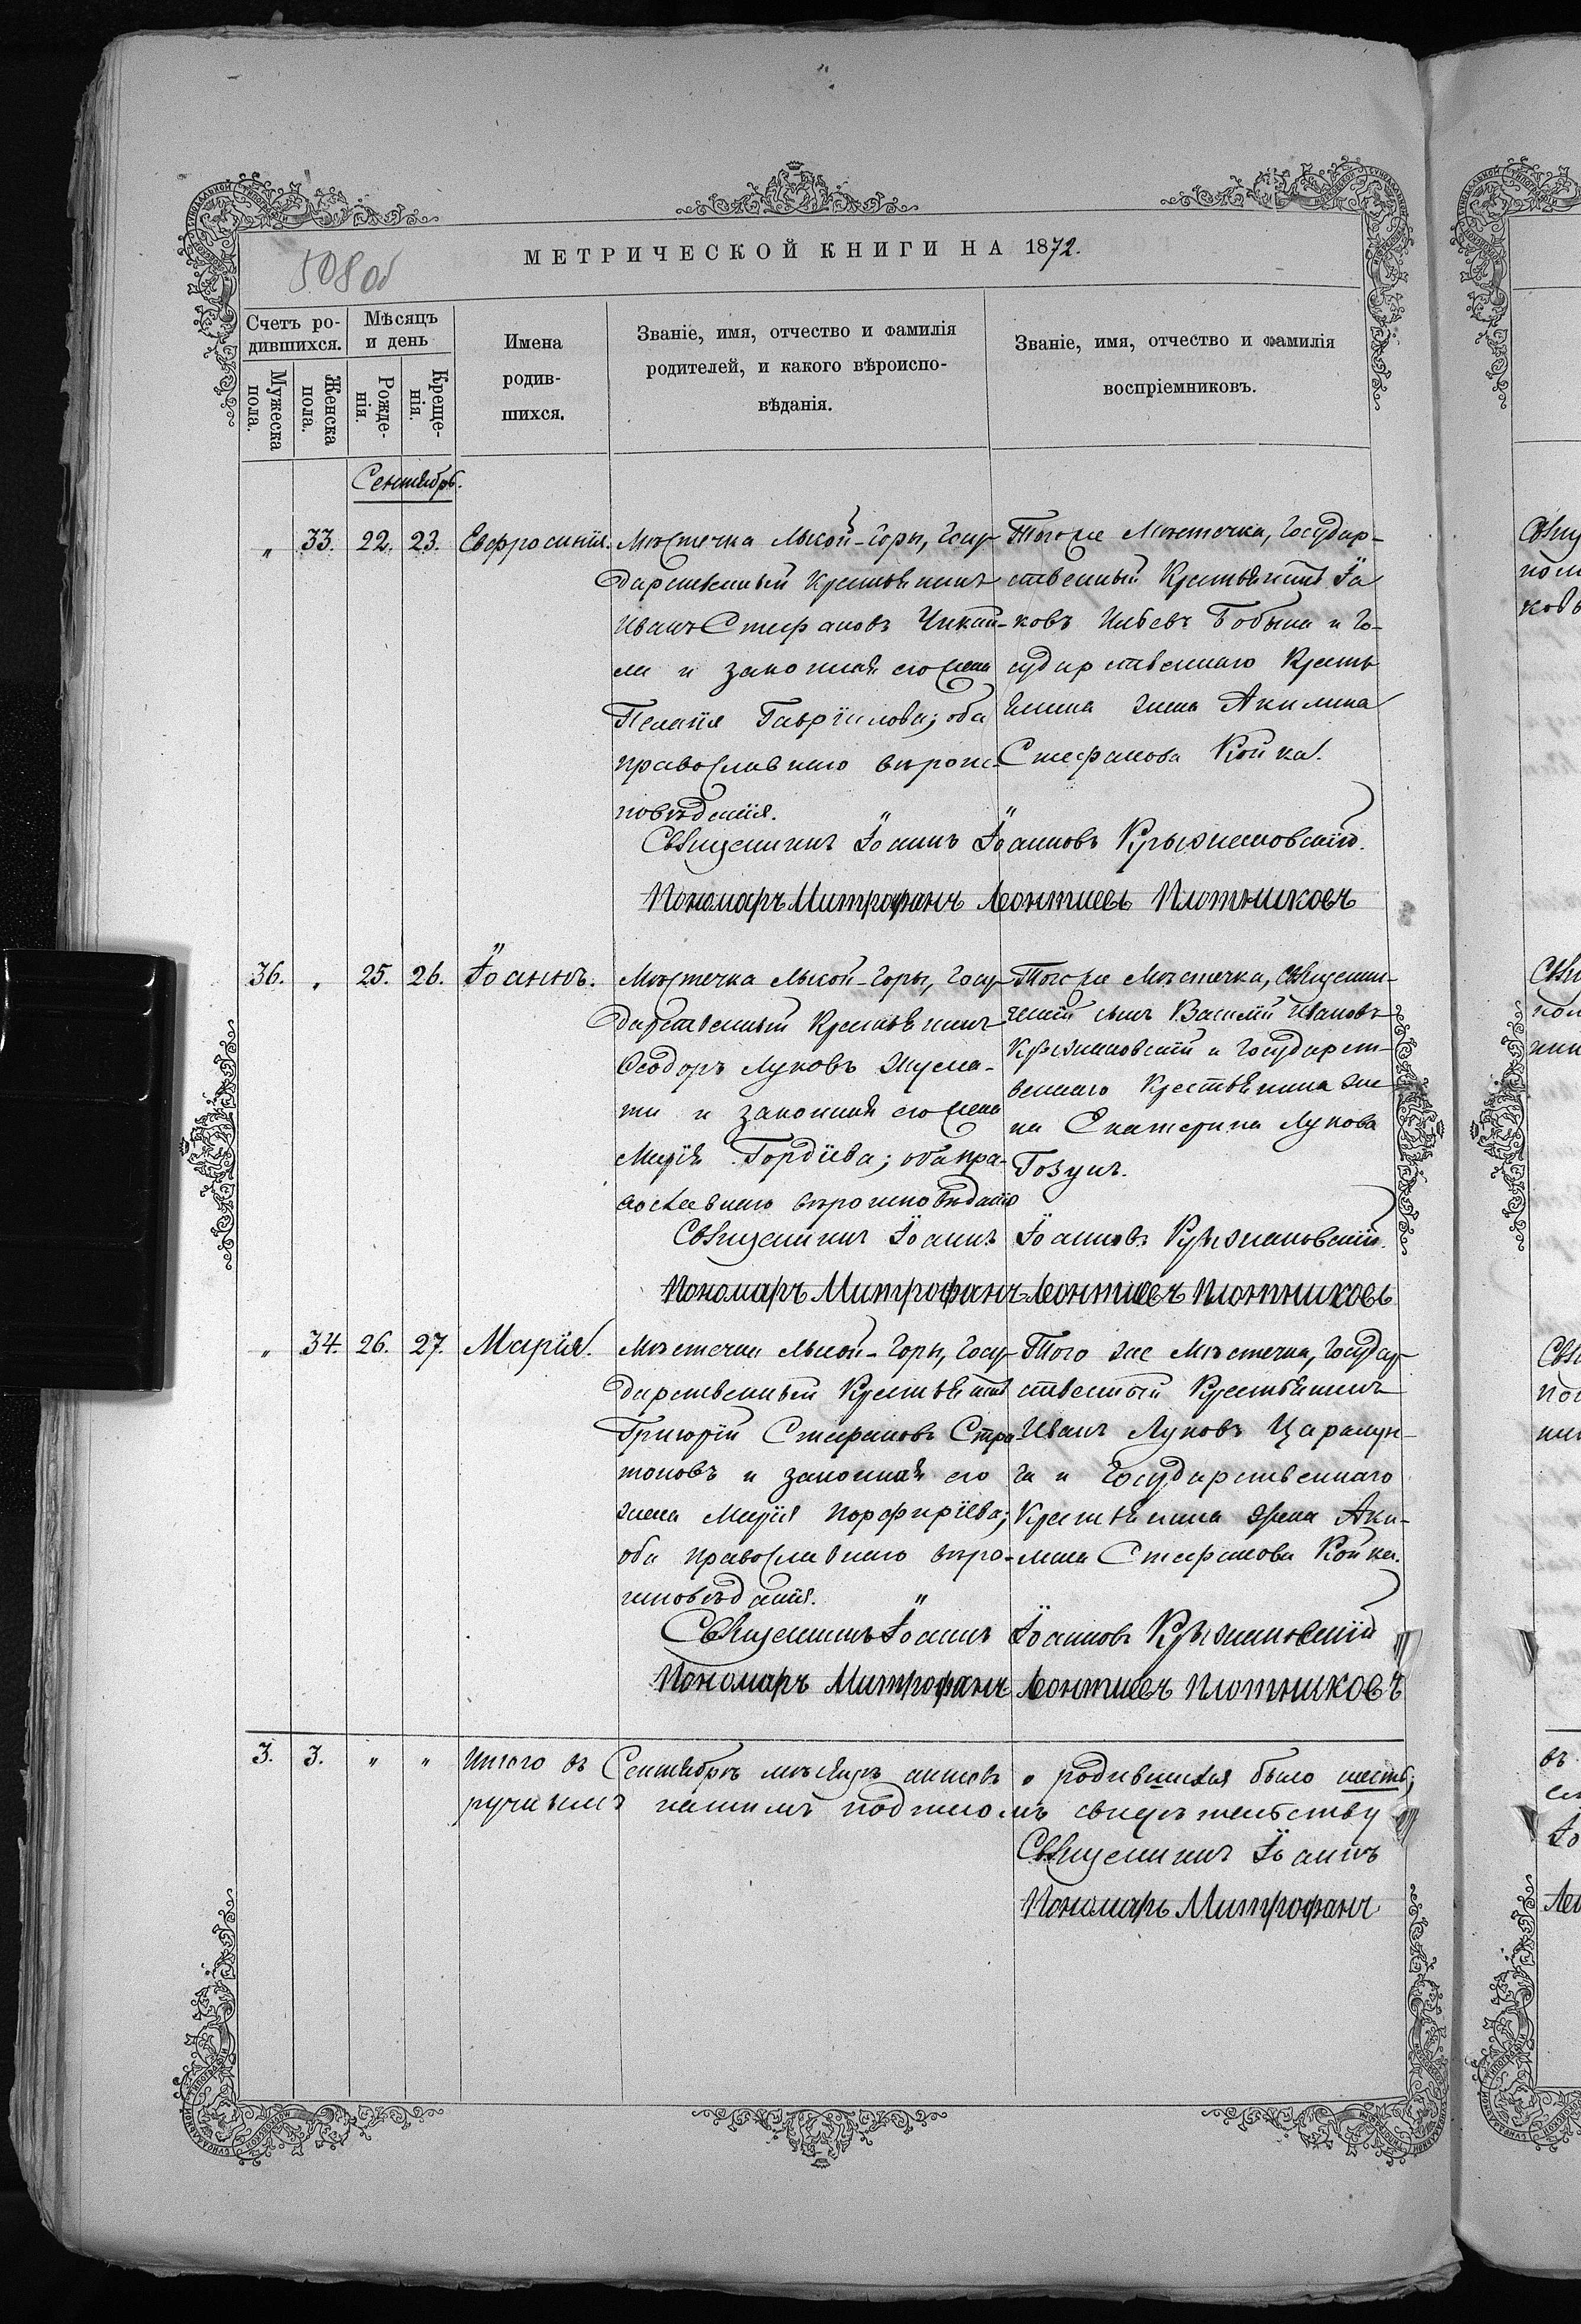 508 об
МЕТРИЧЕСКОЙ КНИГИ НА 1872.
Счетъ ро-
дившихся.
Мужеска
пола.
Женска
пола.
Мѣсяцъ
и день
Рожде-
нія.
Креще-
нія.
Имена
родив-
шихся.
Званіе, имя, отчество и фамилія
родителей, и какого вѣроиспо-
вѣданія.
Званіе, имя, отчество и фамилія
воспріемниковъ.
Сентябрь.
" 33. 22. 23. Евфросинія.
Мѣстечка Лысой-Горы, Госу-
дарственный Крестьянинъ
Иванъ Стефановъ
и законная его жена
Гавріилова; оба
православнаго вѣроис-
повѣданія.
Того же Мѣстечка, Государ-
ственный Крестьянинъ Іа
ковъ и Го-
сударственнаго Кресть
янина жена Акилина
Стефанова Койка.
Священникъ Іоаннъ Іоанновъ Крыжановскій.
Пономарь Митрофанъ Леонтиевъ Плотниковъ
36. " 25. 26. Іоаннъ.
Мѣстечка Лысой-Горы, Госу-
дарственный Крестьянинъ
Ѳеодоръ Луковъ
и законная его жена
Марія Гордіева; оба пра-
вославнаго вѣроисповѣданія
Того же Мѣстечка, Священни-
ческій сынъ Василій Ивановъ
Крыжановскій и Государст-
веннаго Крестьянина же
на Екатерина Лукова
Гозунъ.
Священникъ Іоаннъ Іоанновъ Крыжановскій.
Пономарь Митрофанъ Леонтиевъ Плотниковъ
" 34. 26. 27. Марія.
Мѣстечка Лысой-Горы, Госу-
дарственный Крестьянинъ
Григорій Стефановъ Стра
тоновъ и законная его
жена Марія Порфиріева;
оба православнаго вѣро-
исповѣданія.
Того же Мѣстечка, Государ-
ственный Крестьянинъ
Иванъ Луковъ Царалун-
га и Государственнаго
Крестьянина жена Аки-
лина Стефанова Койка.
Священникъ Іоаннъ Іоанновъ Крыжановскій
Пономарь Митрофанъ Леонтиевъ Плотниковъ
3. 3. " " Итого въ Сентябрѣ мѣсяцѣ родившихся было шесть;
нашимъ подписомъ свидѣтельству
Священникъ Іоаннъ
Пономарь Митрофанъ